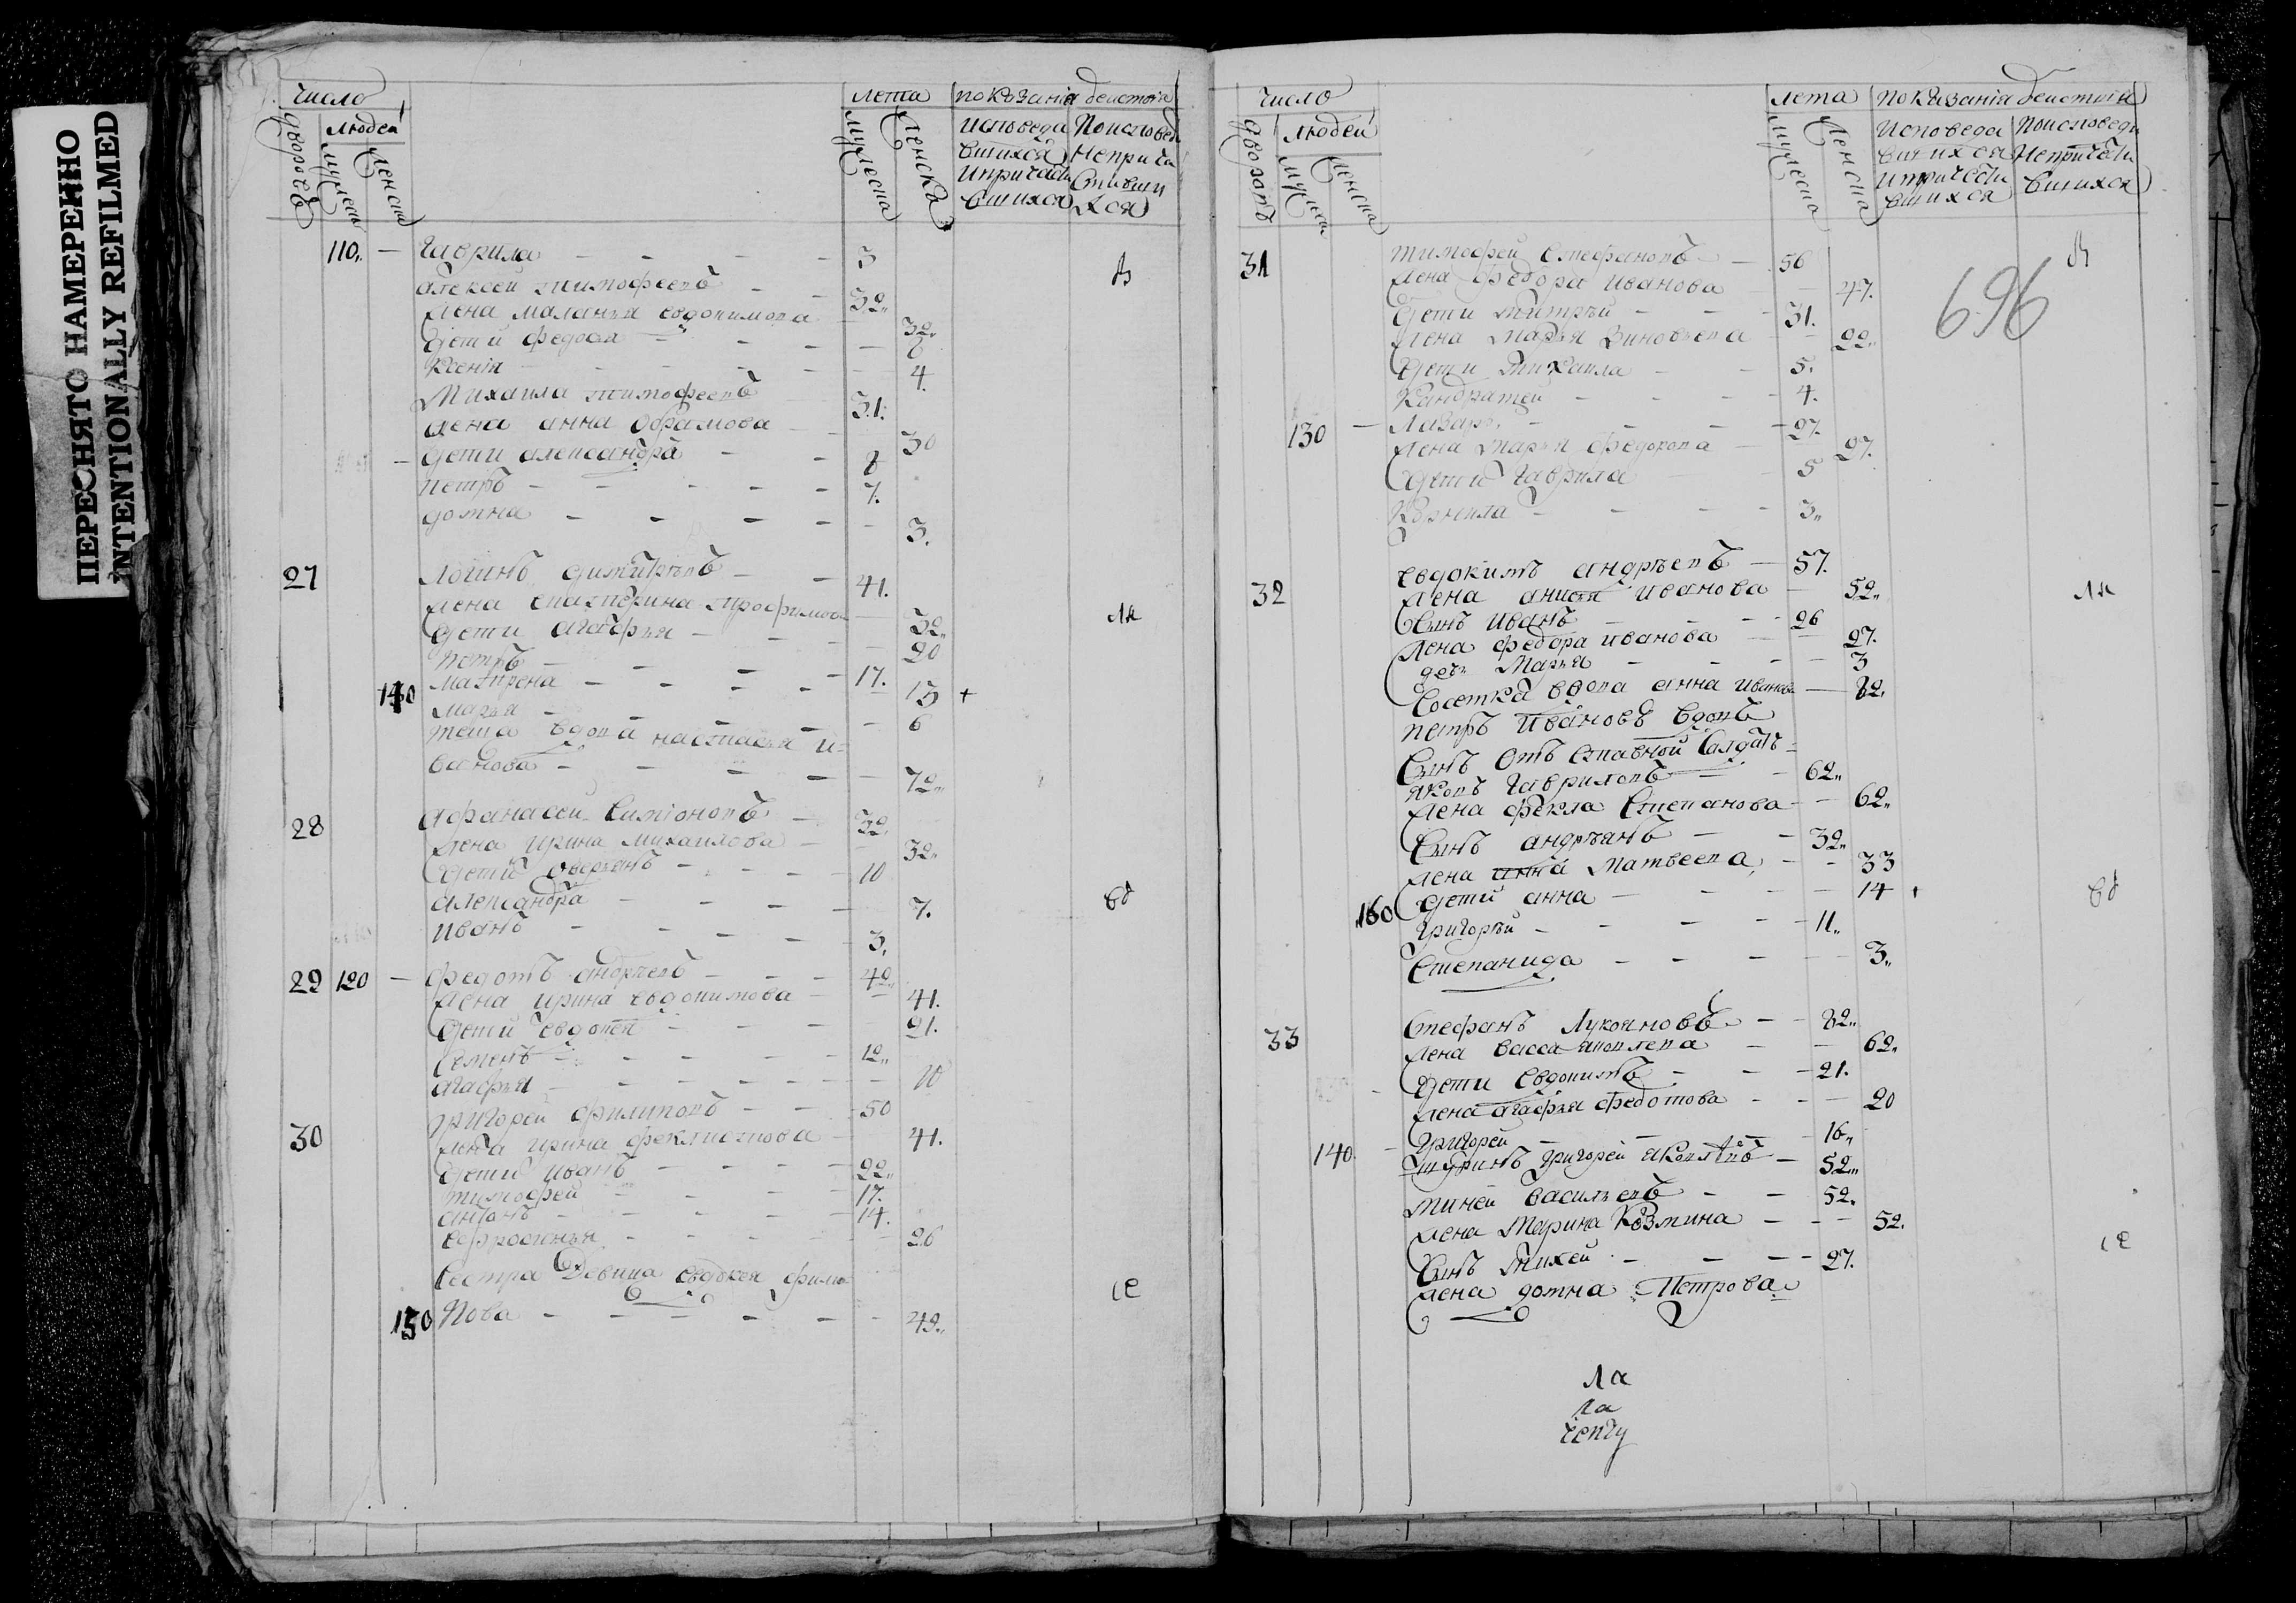 ПЕРЕСНЯТО НАМЕРЕННО
INTENTIONALLY REFILMED
число лета показанiя деиства
дворовъ людей мужеска женска исповеда вшихся и причасти вшихся По исповеди не причастившихся
110. — Гаврила — 3
Алексей тимофеевъ — 32.
жена маланья евдокимова 32.
дети федосья — 6
Ксенiя — 4.
Михаила тимофеевъ 31.
жена анна обрамова — 30
дети александра — 8
петръ — 7.
домна — 3.
27 логинъ димитрѣевъ — 41.
жена екатерина трофимова 32.
дети агафья — 20
петръ — 17.
140 матирена — 13 +
марья — 6
теща вдова настасья и-
ванова — 72.
28 афанасеи симiоновъ — 32.
жена ирина михаилова — 32.
дети оверьянъ — 10
александра — 7.
иванъ — 3.
29 120 — федотъ андрѣевъ — 42.
жена ирина евдокимова — 41.
дети евдокея — 21.
семенъ — 12.
агафья — 10
30 григорей филиповъ — 50
жена ирина феклистова — 41.
дети иванъ — 22.
тимофей — 17.
антонъ — 14.
ефросинья — 26
сестра девица евдокея фили
150 пова — 42.
число лета показанiя деиства
дворовъ людей мужеска женска исповеда вшихся и причасти вшихся По исповеди не причасти вшихся
696
31 тимофей стефановъ — 56
жена федора иванова 47.
дети дмитрѣй — 31.
жена марья зиновьева 22.
дети михаила — 5.
кандратей — 4.
130 — лазарь — 27.
жена марья федорова — 27.
дети гаврила 5
корнила — 3.
32 евдокимъ андрѣевъ — 57.
жена анисья иванова — 52.
сынъ иванъ — 26
жена федора иванова — 27.
дочь марья — 3
вдова анна иванова — 82.
петръ ивановъ вдовъ
сынъ отъ ставной салдатъ
яковъ гавриловъ — 62.
жена фекла степанова — 62.
сынъ андрѣянъ — 32.
жена анна матвеева — 33
160 дети анна — 14 +
григорѣй — 11.
степанида — 3.
33 стефанъ лукояновъ — 82.
жена васса яковлева — 62.
дети евдокимъ — 21.
жена агафья федотова — 20
григорей — 16.
140. — шуринъ григорей яковлевъ — 52.
миней васильевъ — 52.
жена марина козмина — 52.
сынъ михей — 27.
жена домна петрова
ла
ла